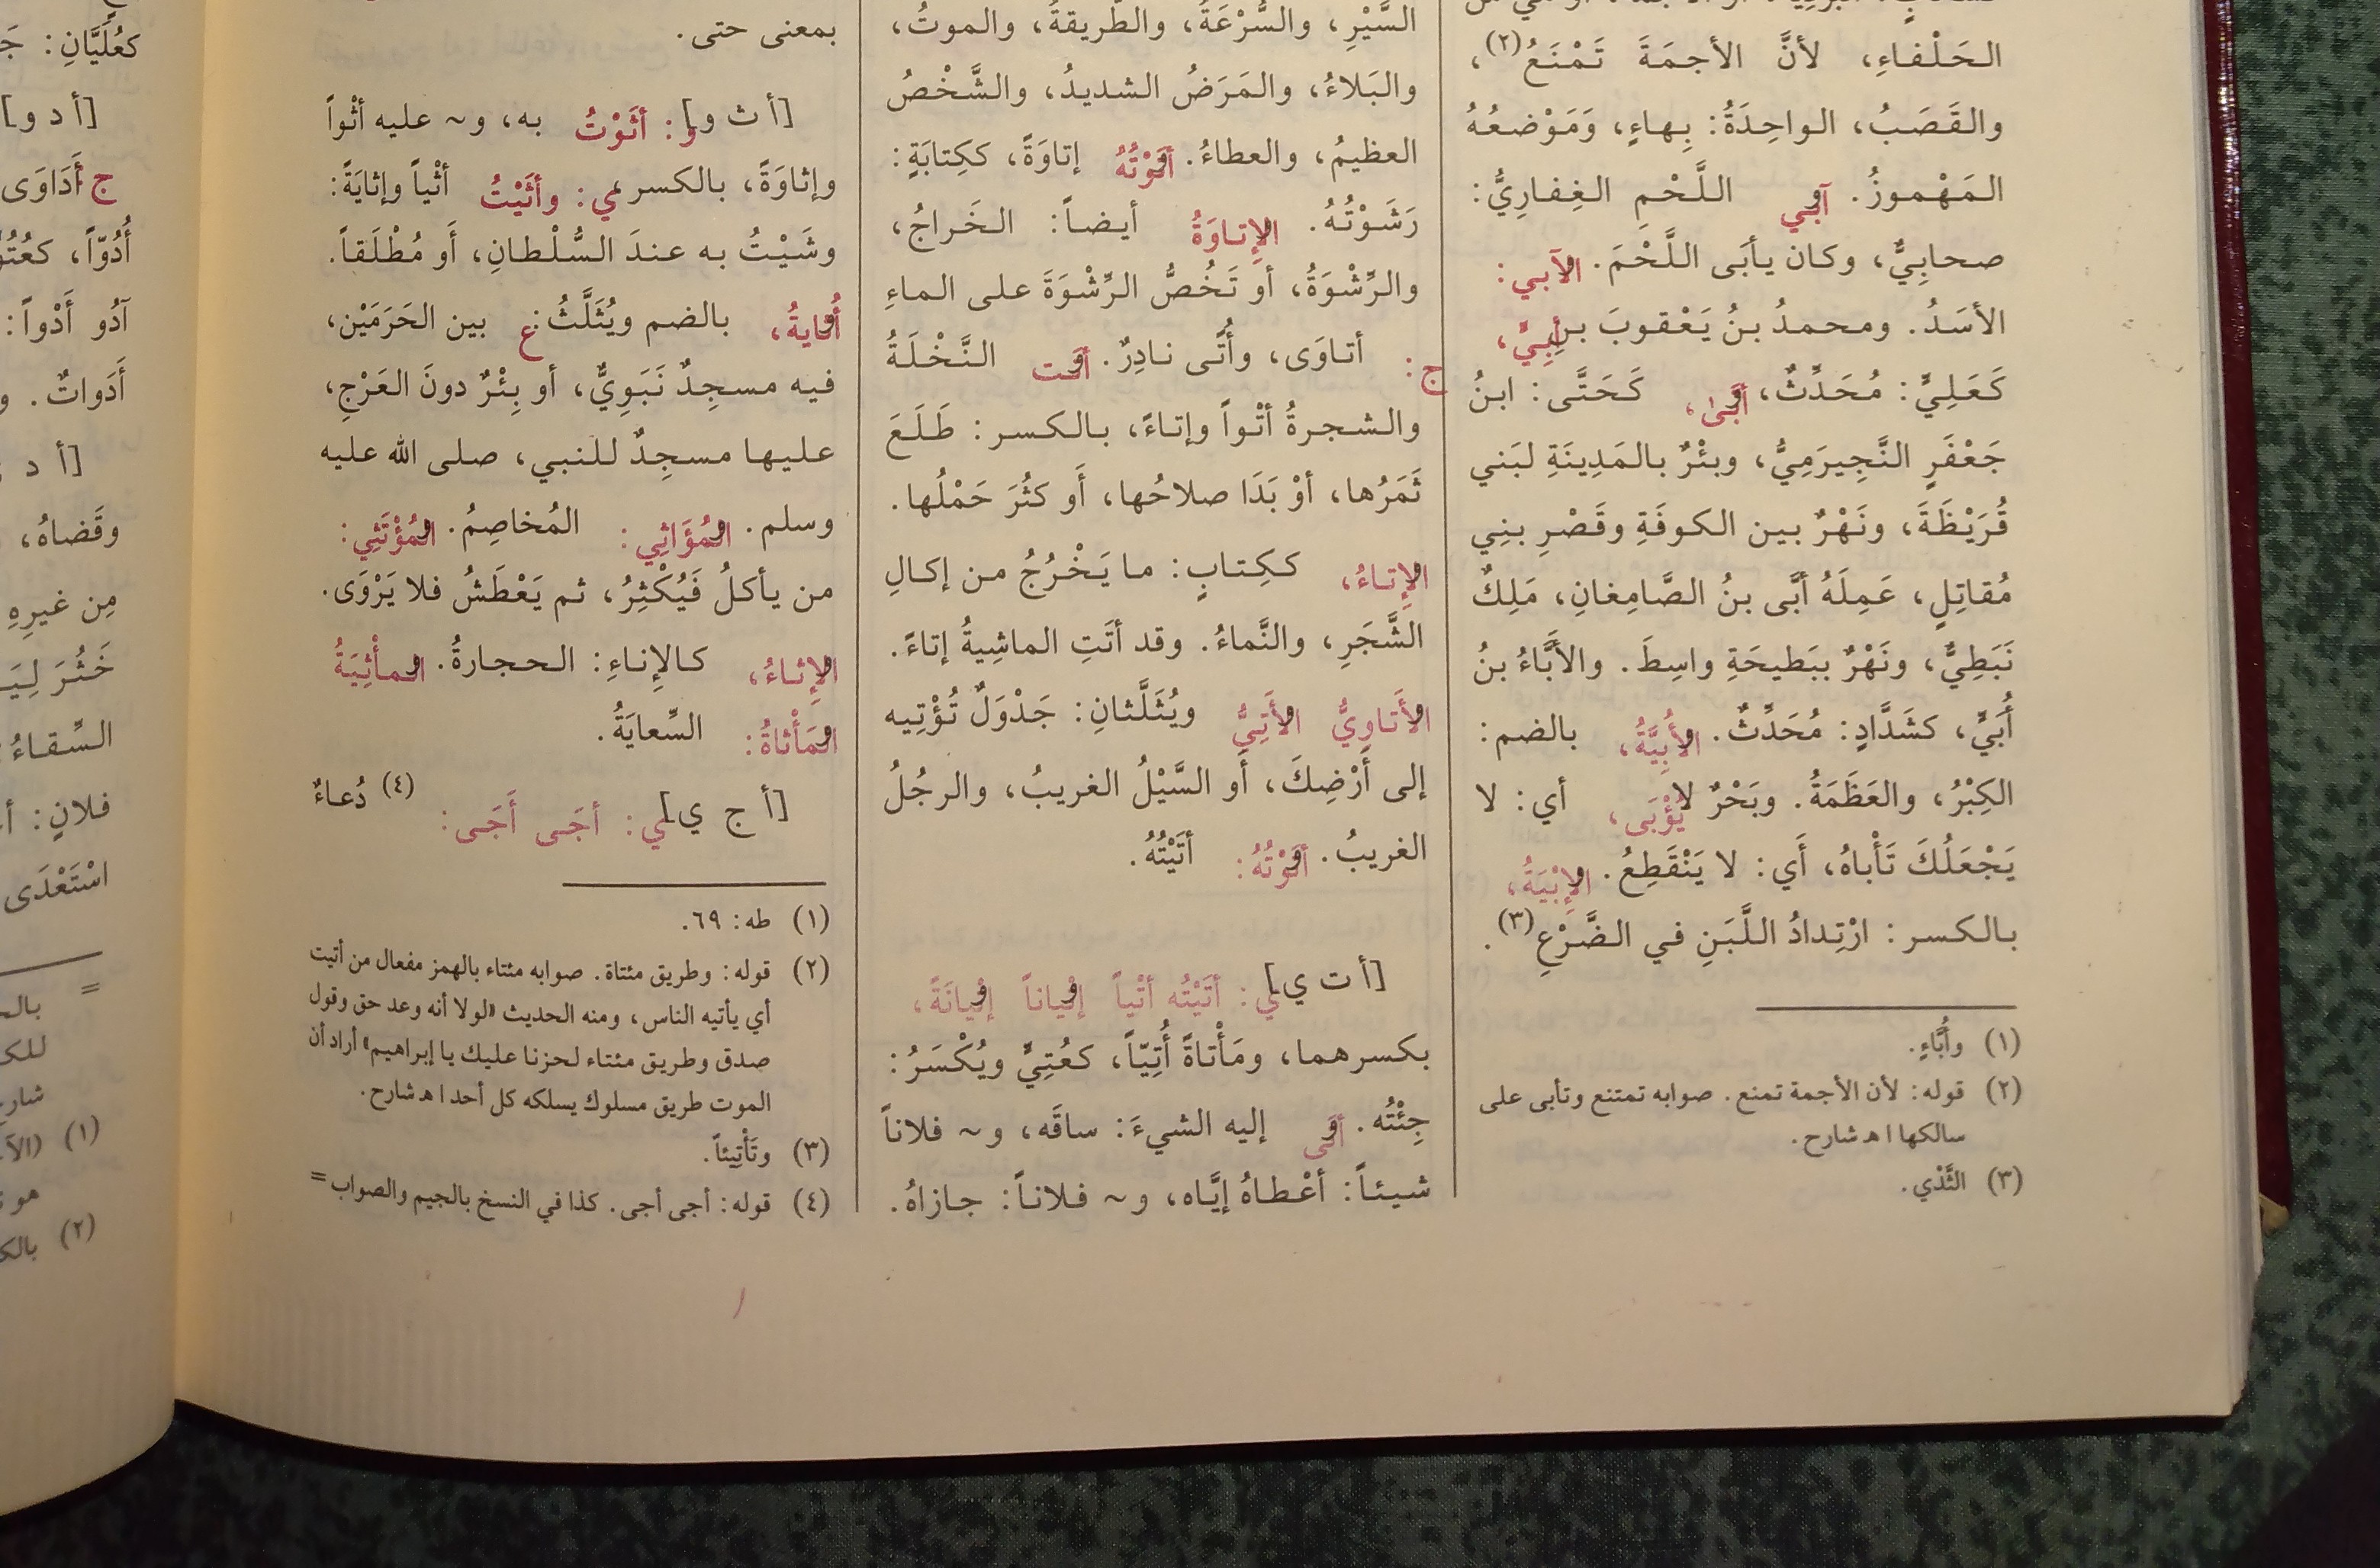 الحَلْفاءِ، لأنَّ الأجمَةَ تَمْنَعُ(٢)،
والقَصَبُ، الواحِدَةُ: بِهاءٍ، وَمَوْضعُهُ
المَهْموزُ. وآبي اللَّحْمِ الغِفاريُّ:
صحابِيٌّ، وكان يأبَى اللَّحْمَ. والآبي:
الأسَدُ. ومحمدُ بنُ يَعْقوبَ بنِ أبِيٍّ،
كَعَلِيٍّ: مُحَدِّثٌ، وأبَّى، كَحَتَّى: ابنُ
جَعْفَرٍ النَّجِيرَمِيُّ، وبئْرٌ بالمَدِينَةِ لبَني
قُرَيْظَةَ، ونَهْرٌ بين الكوفَةِ وقَصْرِ بنِي
مُقاتِلٍ، عَمِلَهُ أبَّى بنُ الصَّامِغانِ، مَلِكٌ
نَبَطِيٌّ، ونَهْرٌ ببَطيحَةِ واسِطَ. والأبَّاءُ بنُ
أُبَيٍّ، كشَدَّادٍ: مُحَدِّثٌ. والأُبِيَّةُ، بالضم:
الكِبْرُ، والعَظَمَةُ. وبَحْرٌ لا يُؤْبَى، أي: لا
يَجْعَلُكَ تَأْباهُ، أَي: لا يَنْقَطِعُ. والإِبْيَةُ،
بالكسر: ارْتِدادُ اللَّبَنِ في الضَّرْعِ(٣).
(١) وأُبَّاءٍ.
(٢) قوله: لأن الأجمة تمنع. صوابه تمتنع وتأبى على
سالكها ا هـ شارح.
(٣) الثَّدْي.
السَّيْرِ، والسُّرْعَةُ، والطَّريقةُ، والموتُ،
والبَلاءُ، والمَرَضُ الشديدُ، والشَّخْصُ
العظيمُ، والعطاءُ. وأتَوْتُهُ إتاوَةً، ككِتابَةٍ:
رَشَوْتُهُ. والإتاوَةُ أيضاً: الخَراجُ،
والرِّشْوَةُ، أو تَخُصُّ الرِّشْوَةَ على الماءِ
ج: أتاوَى، وأُتًى نادِرٌ. وأتَت النَّخْلَةُ
والشجرةُ أتْواً وإتاءً، بالكسر: طَلَعَ
ثَمَرُها، أوْ بَدَا صلاحُها، أَو كثُرَ حَمْلُها.
والإتاءُ، ككِتابٍ: ما يَخْرُجُ من إكالِ
الشَّجَرِ، والنَّماءُ. وقد أتَتِ الماشِيةُ إتاءً.
والأَتاوِيُّ والأَتِيُّ ويُثَلَّثانِ: جَدْوَلٌ تُؤْتِيه
إلى أَرْضِكَ، أَو السَّيْلُ الغريبُ، والرجُلُ
الغريبُ. وأتَوْتُهُ: أتَيْتُهُ.
[أ ت ي] ي: أتَيْتُه أتْياً وإتْياناً وإتْيانَةً،
بكسرهما، ومَأْتاةً أُتِيّاً، كعُتِيٍّ ويُكْسَرُ:
جِئْتُه. وأتَى إليه الشيءَ: ساقَه، و~ فلاناً
شيئاً: أعْطاهُ إيَّاه، و~ فلاناً: جازاهُ.
بمعنى حتى.
[أ ث و] و: أثَوْتُ به، و~ عليه أثْواً
وإثاوَةً، بالكسر ي: وأثَيْتُ أثْياً وإثايَةً:
وشَيْتُ به عندَ السُّلْطانِ، أَو مُطْلَقاً.
وأُثايةُ، بالضم ويُثَلَّثُ: ع بين الحَرَمَيْن،
فيه مسجِدٌ نَبَوِيٌّ، أو بِئْرٌ دونَ العَرْجِ،
عليها مسجِدٌ للنبي، صلى الله عليه
وسلم. والمُؤَاثِي: المُخاصِمُ. والمُؤْتَثِي:
من يأكلُ فَيُكْثِرُ، ثم يَعْطَشُ فلا يَرْوَى.
والإثاءُ، كالإناءِ: الحجارةُ. والمأْثِيَةُ
والمَأْثاةُ: السِّعايَةُ.
[أ ج ي] ي: أجَى أَجَى: (٤) دُعاءٌ
(١) طه: ٦٩.
(٢) قوله: وطريق مئتاة. صوابه مئتاء بالهمز مفعال من أتيت
أي يأتيه الناس، ومنه الحديث «لولا أنه وعد حق وقول
صدق وطريق مئتاء لحزنا عليك يا إبراهيم» أراد أن
الموت طريق مسلوك يسلكه كل أحد ا هـ شارح.
(٣) وتَأْتِيئاً.
(٤) قوله: أجى أجى. كذا في النسخ بالجيم والصواب =
كعُلَيَّانِ:
[أ د و]
ج أَدَاوَى
أُدُوّاً،
آدُو أَدْواً:
أَدَواتٌ.
[أ د
وقَضاهُ،
مِن غيرِهِ
خَثُرَ
السِّقاءُ
فلانٍ:
اسْتَعْدَى
=
(١)
(٢)